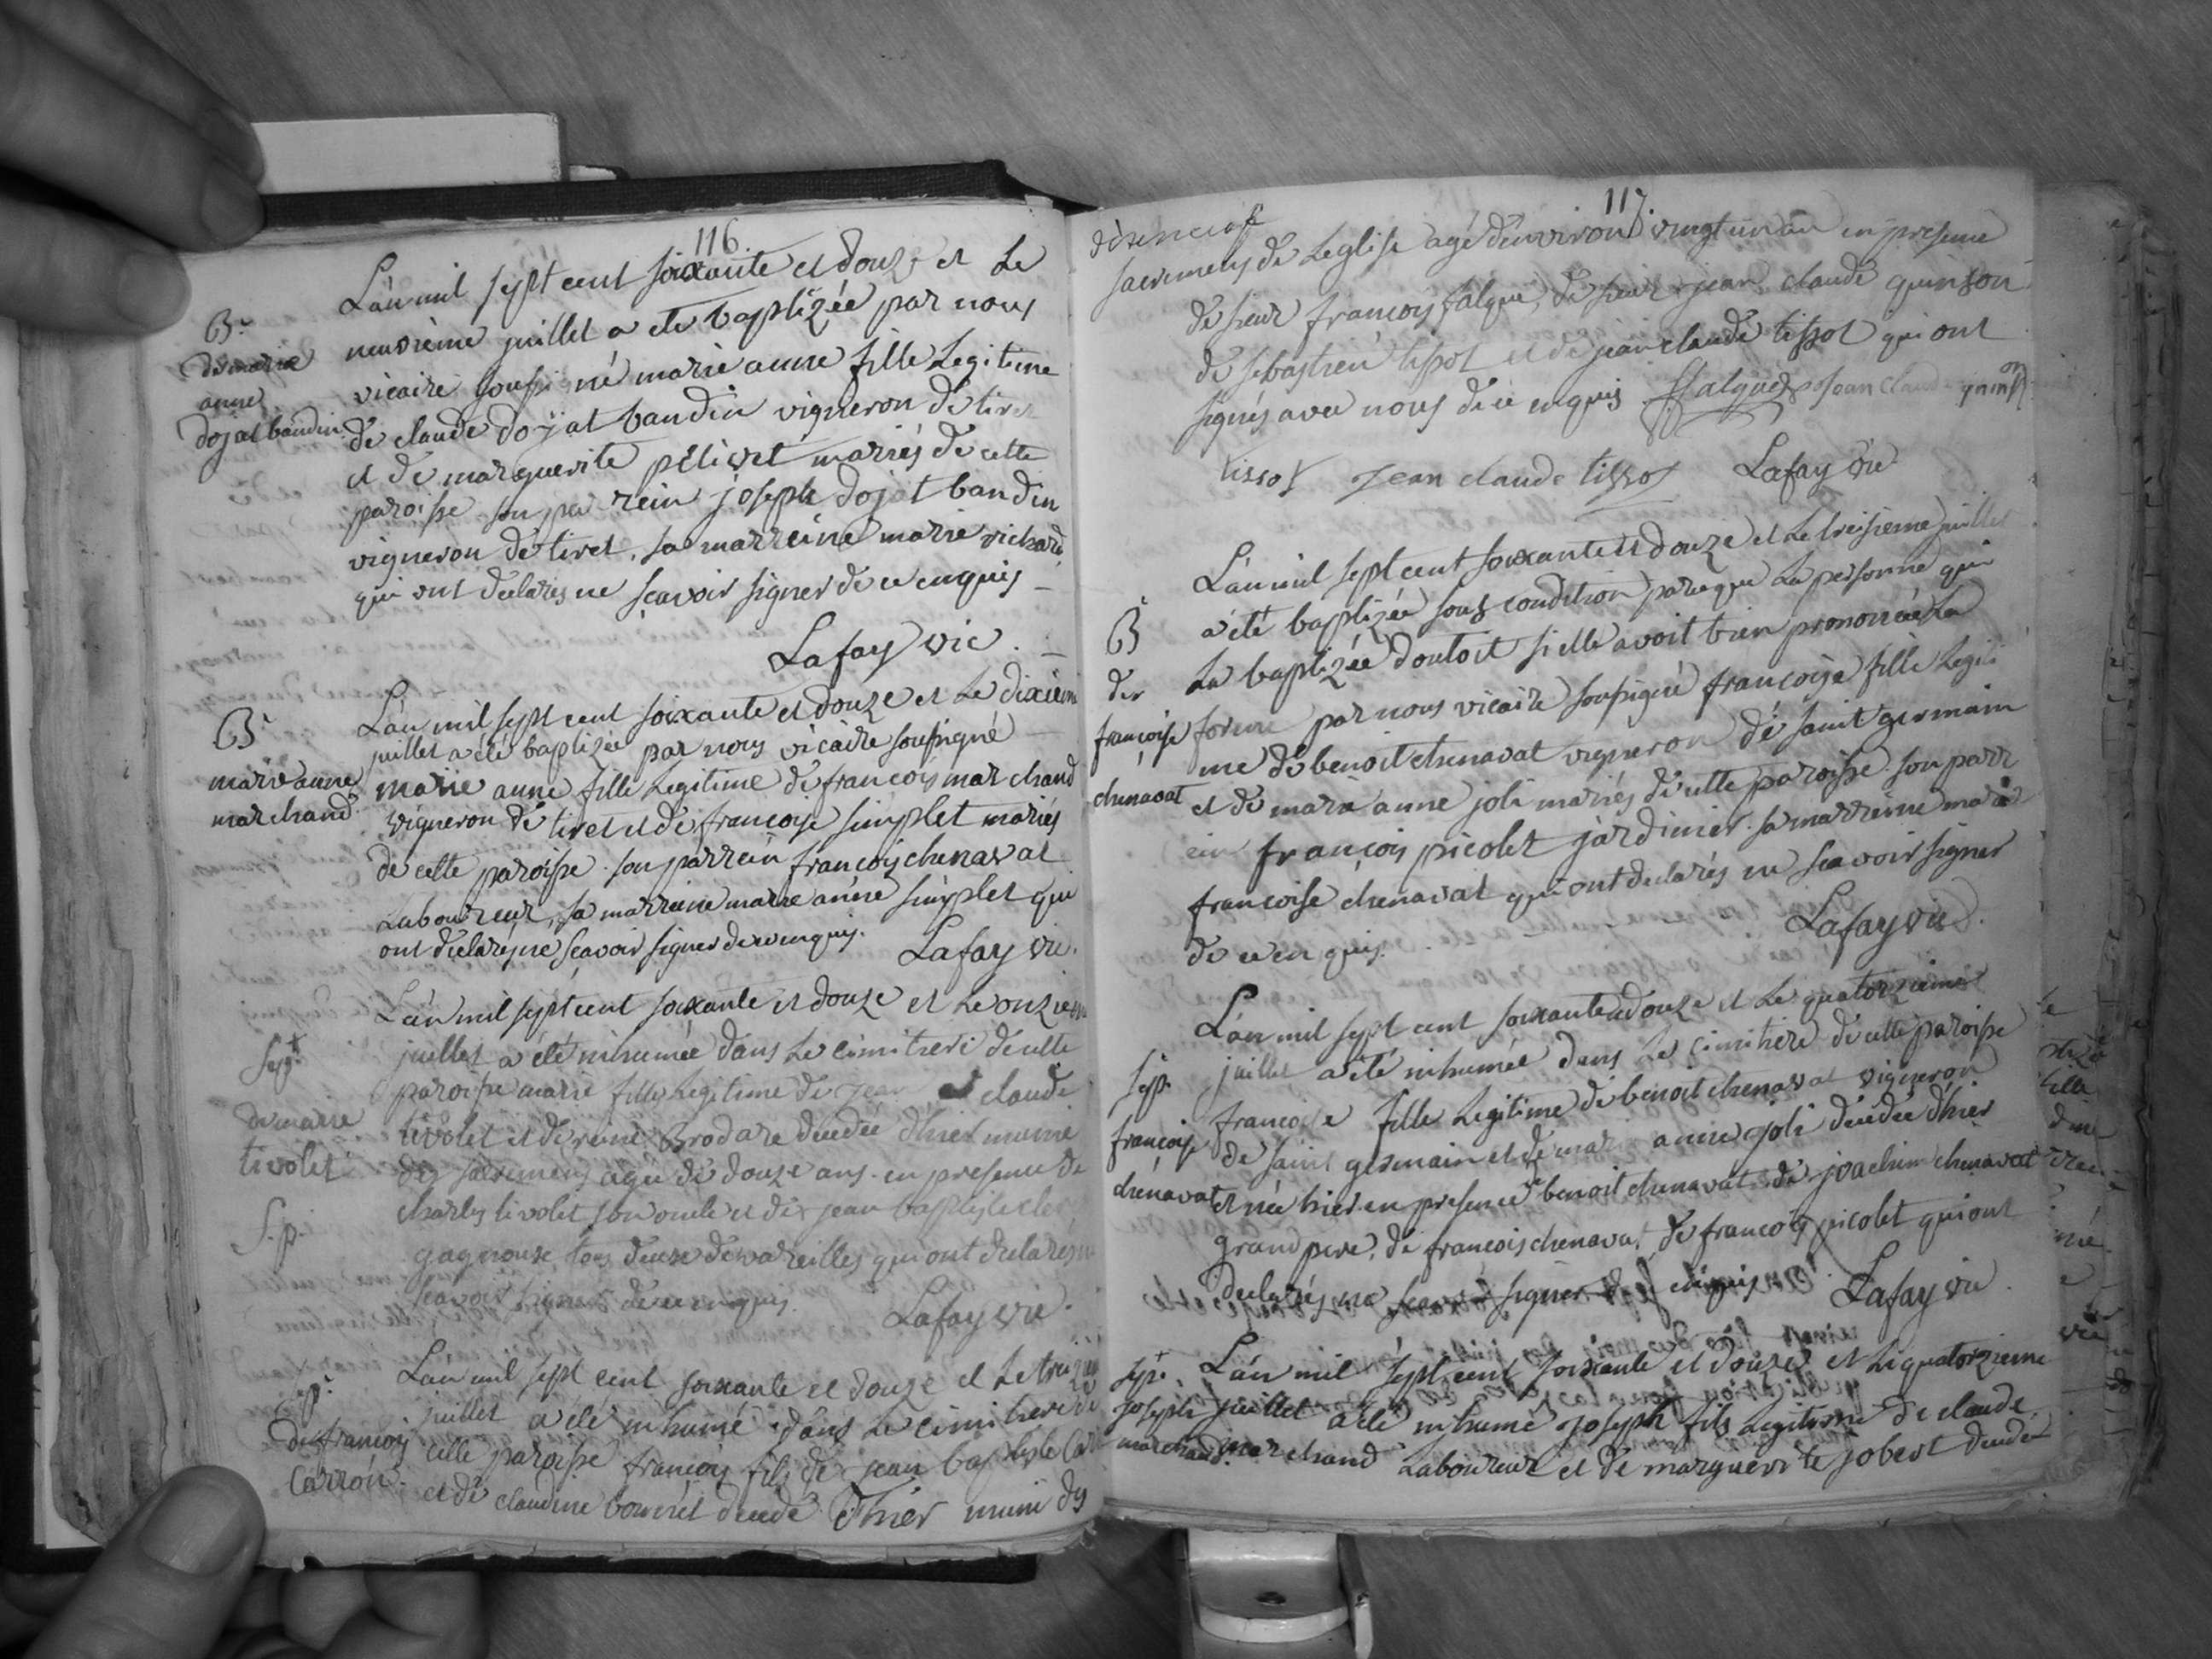 116.
L'an mil sept cent soixante et douze et Le
neuvième juillet a ete baptizée par nous
vicaire soussigné marie anne fille Legitime
de claude dojat bandin vigneron de tiret
et de marguerite pélicet mariés de cette
paroisse son parrein joseph dojat bandin
vigneron de tiret, sa marreine marie richard
qui ont declarés ne scavoir signer de ce enquis
Lafay vic.
B.
de marie
anne
dojat bandin
L'an mil sept cent soixante et douze et Le dixieme
juillet a été baptizée par nous vicaire soussigné
marie anne fille Legitime de françois marchand
vigneron de tiret et de françoise simplet mariés
de cette paroisse. son parrein françois chenavat
Laboureur, sa marreine marie anne simplet qui
ont declarés ne scavoir signer de ce enquis.
Lafay vic.
B.
marie anne
marchand
L'an mil sept cent soixante et douze et Le onzieme
juillet a été inhumée dans Le cimitiere de cette
paroisse marie fille Legitime de jean claude
tivolet et de reine Brodare decedée d'hier munie
des sacremens agée de douze ans. en presence de
charles tivolet son oncle et de jean baptiste
gagneuse tous deux de vareilles qui ont declarés
scavoir signer de ce enquis.
Lafay vic.
Sep.
de marie
tivolet
S. p.
L'an mil sept cent soixante et douze et Le
juillet a été inhumé dans Le cimitiere de
cette paroisse françois fils de jean baptiste
et de claudine decedé d'hier muni des
Sep.
de françois
Carron
117.
sacremens de Leglise agé d'environ vingt un an en presence
de sieur françois falque, de sieur jean claude quinson
de sebastien tissot et de jean claude tissot qui ont
signés avec nous de ce enquis ffalque Jean Claude quinson
tissot Jean claude tissot Lafay vic
L'an mil sept cent soixante et douze et Le treisieme juillet
a été baptizée sous condition parceque La personne qui
La baptizée doutoit si elle avoit bien prononcée La
forme par nous vicaire soussigné françoise fille Legiti
me de benoit chenavat vigneron de saint germain
et de marie anne joli mariés de cette paroisse. son parr
ein françois picolet jardinier. sa marreine marie
françoise chenavat qui ont declarés ne scavoir signer
de ce enquis.
Lafay vic.
B
de
françoise
chenavat
L'an mil sept cent soixante et douze et Le quatorzieme
juillet a été inhumée dans Le cimitiere de cette paroisse
françoise fille Legitime de benoit chenavat vigneron
de saint germain et de marie anne joli decedée d'hier
et née hier. en presence benoit chenavat de joachim chenavat
grand pere, de françois chenavat de françois picolet qui ont
declarés ne scavoir signer de ce enquis
Lafay vic.
sep.
françoise
chenavat
L'an mil sept cent soixante et douze et Le quatorzieme
juillet a été inhumé joseph fils Legitime de claude
marchand Laboureur et de marguerite jobert decedé
sep.
joseph
marchand